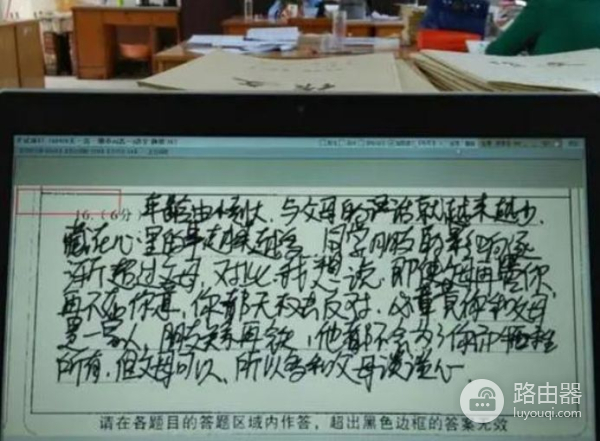 16.(6分) 年龄由小到大,与父母的话语就越来越少,
藏在心里的事却越来越多,同学朋友的影响逐
渐超过父母,对此,我想说,即使父母再
再不如你意,你都无权去反对,你和父母
是一家人,朋友关系再铁,他都不会为了你而牺牲
所有,但父母可以、所以多和父母谈谈心.
请在各题目的答题区域内作答,超出黑色边框的答案无效
路由器
luyouqi.com